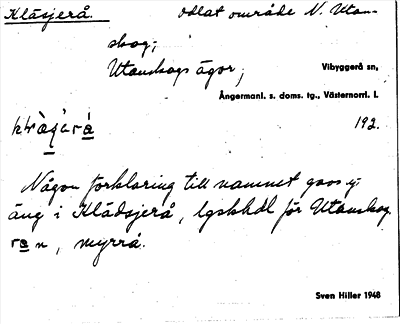 Klåsjerå. odlat område N. Utan-
skog;
Utanskogs ägor; Vibyggerå sn,
Ångermanl. s. doms. tg., Västernorrl. l.
192.
Någon förklaring till namnet gavs ej.
äng i Klådsjerå, lgskhdl för Utanskog
ra n, myrrå.
Sven Hiller 1948